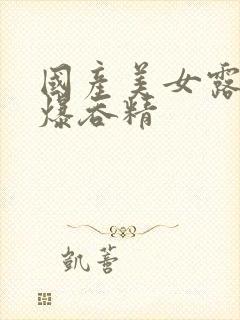 國產美女露
爆吞精
凱薈